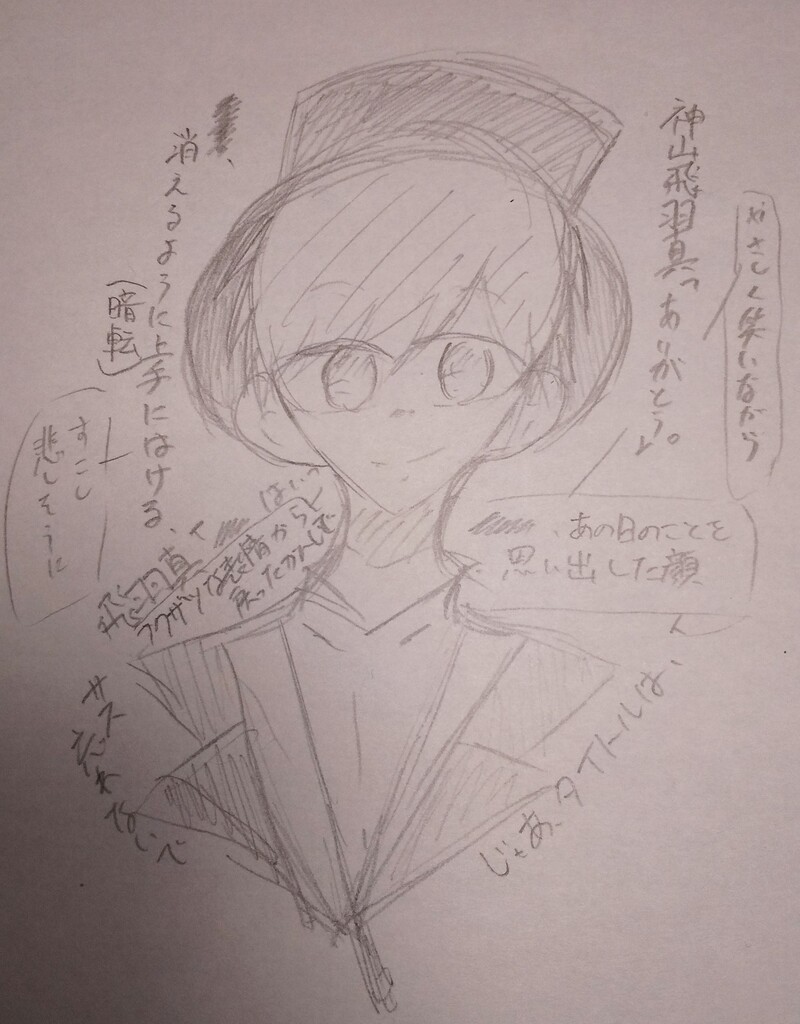 やさしく笑いながら
神山飛羽真「ありがとう。」
、あの日のことを
思い出した顔
「じゃあ、タイトルは、
飛羽真「
はいっ」
フクザツな表情から
戻ったかんじで
、消えるように上手にはける、
(暗転)
すこし
悲しそうに
サス